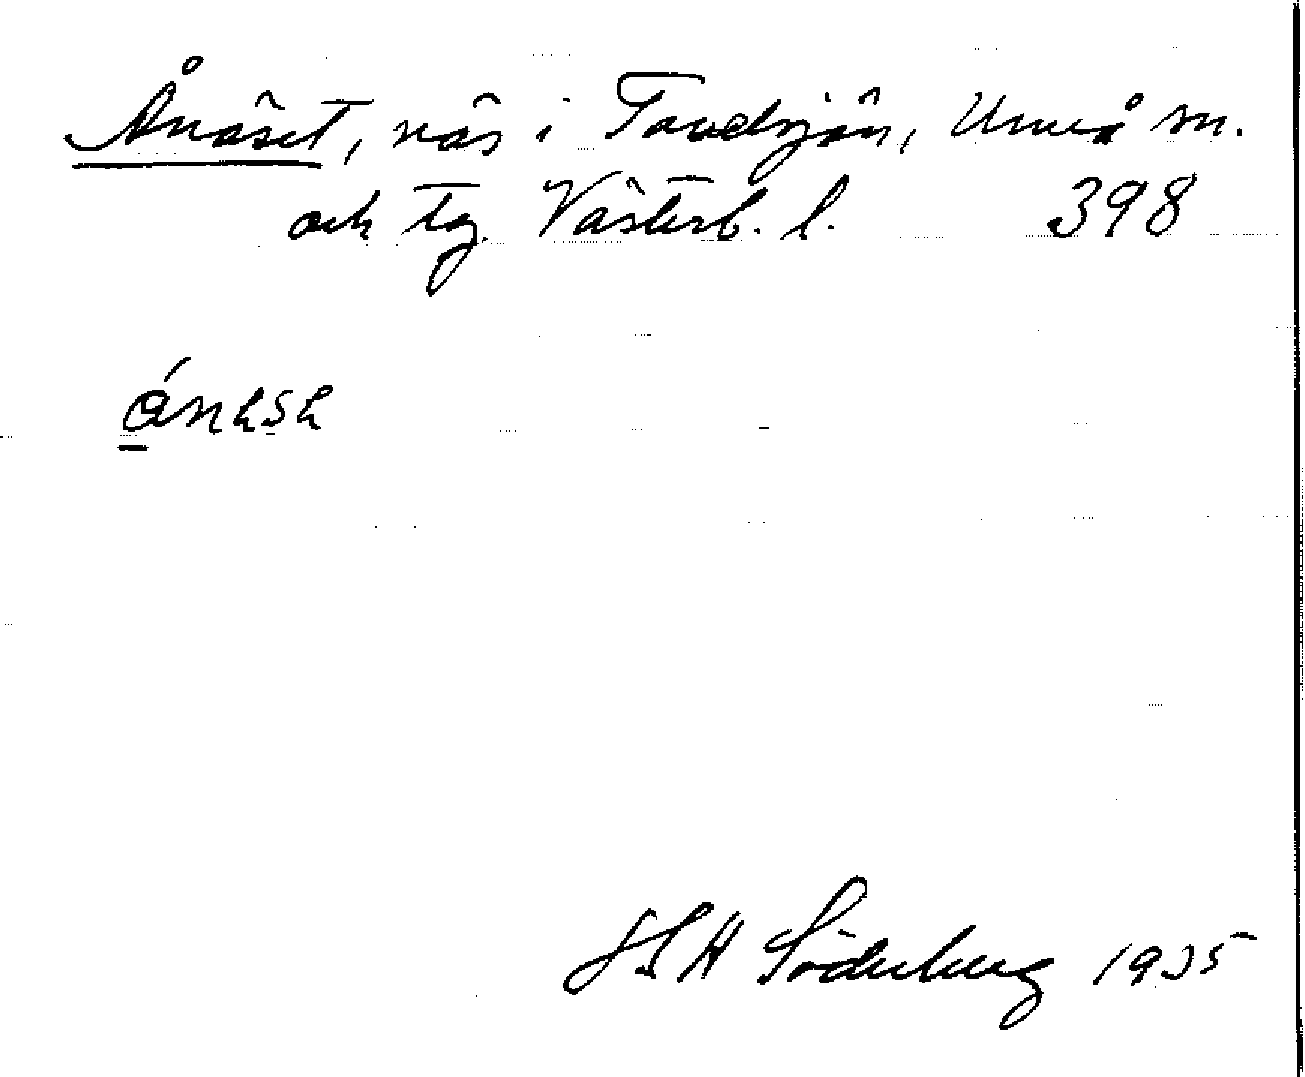 Ånäset, näs i Tavelsjön, Umeå sn.
och tg. Västerb. l. 398
Söderberg 1935